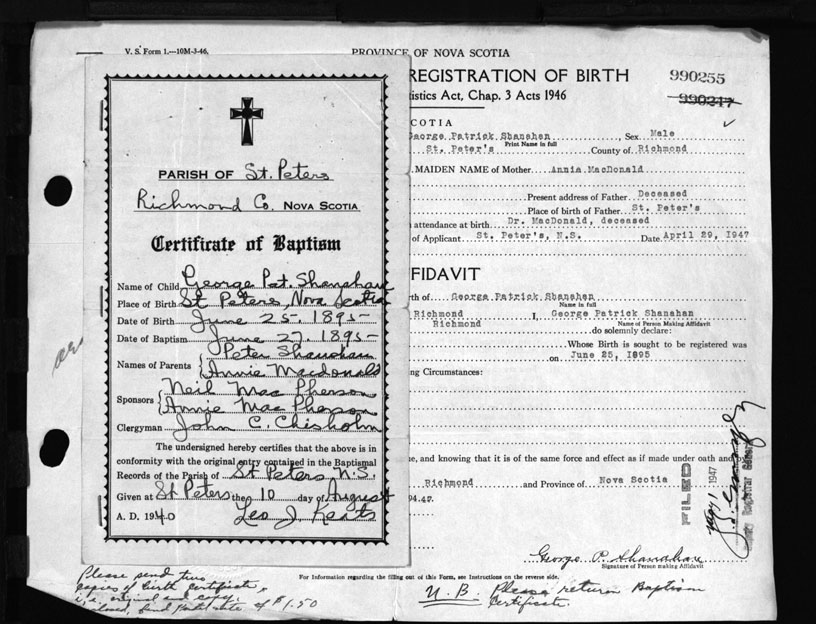 V. S. Form 1.—10M-3-46.
PROVINCE OF NOVA SCOTIA
REGISTRATION OF BIRTH
990255
990247
tistics Act, Chap. 3 Acts 1946
PARISH OF St. Peters
Richmond Co. NOVA SCOTIA
Certificate of Baptism
Name of Child George Pat. Shanahan
Place of Birth St Peters, Nova Scotia
Date of Birth June 25, 1895
Date of Baptism June 27, 1895
Names of Parents { Peter Shanahan
Annie Macdonald
Sponsors { Neil MacPherson
Annie MacPherson
Clergyman John C. Chisholm
The undersigned hereby certifies that the above is in
conformity with the original entry contained in the Baptismal
Records of the Parish of St Peters N.S.
Given at St Peters the 10 day of August
A. D. 1940 Leo J. Keats
COTIA
George Patrick Shanahan, Sex Male
Print Name in full
St. Peter's County of Richmond
MAIDEN NAME of Mother Annia MacDonald
Present address of Father Deceased
Place of birth of Father St. Peter's
attendance at birth Dr. MacDonald, deceased
of Applicant St. Peter's, N.S. Date April 29, 1947
FFIDAVIT
rth of George Patrick Shanahan
Name in full
Richmond I, George Patrick Shanahan
Name of Person Making Affidavit
Richmond do solemnly declare:
Whose Birth is sought to be registered was
on June 25, 1895
ng Circumstances:
ue, and knowing that it is of the same force and effect as if made under oath and
Richmond and Province of Nova Scotia
94.47.
FILED
1947
Registrar General
George P. Shanahan
Signature of Person making Affidavit
For Information regarding the filling out of this Form, see Instructions on the reverse side.
Please send two
copies of birth certificate,
i, e, original and copy.
find postal note of $1.50
N. B. Please return Baptism
Certificate.